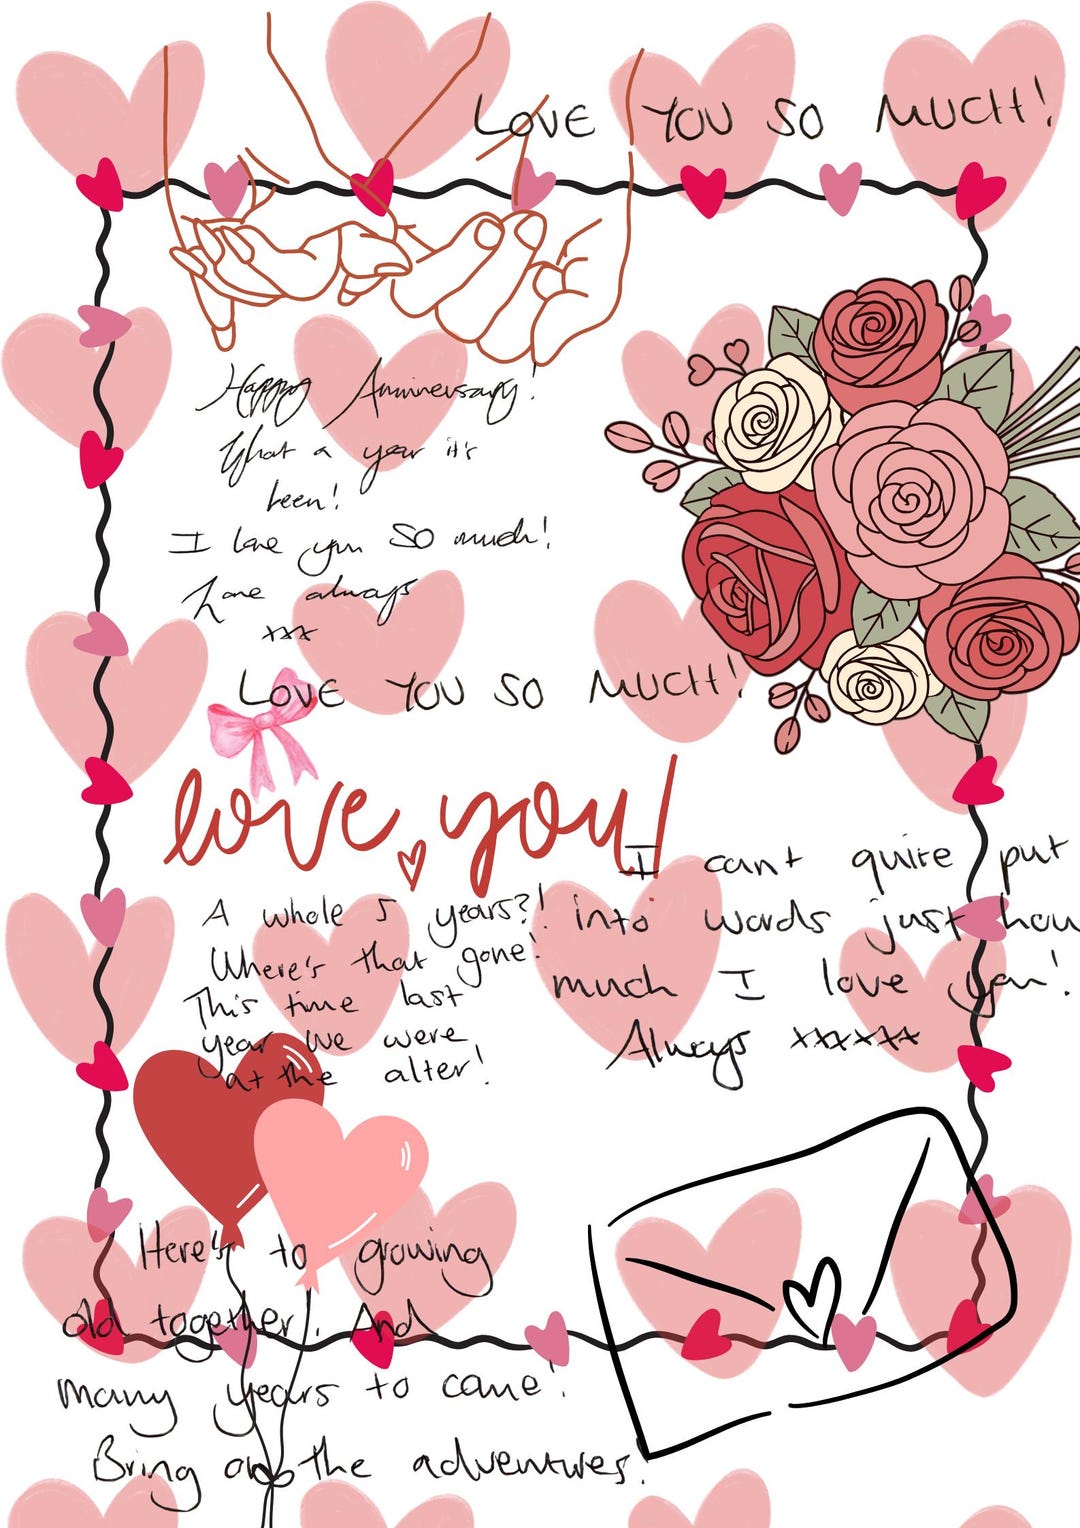 LOVE YOU SO MUCH!
Happy Anniversary!
What a year it's
been!
I love you SO much!
Love always
xxx
LOVE YOU SO MUCH!
love you!
A whole 5 years?!
Where's that gone!
This time last
year we were
at the alter!
I can't quite put
into words just how
much I love you!
Always xxxxxx
Here's to growing
old together! And
many years to come!
Bring on the adventures!